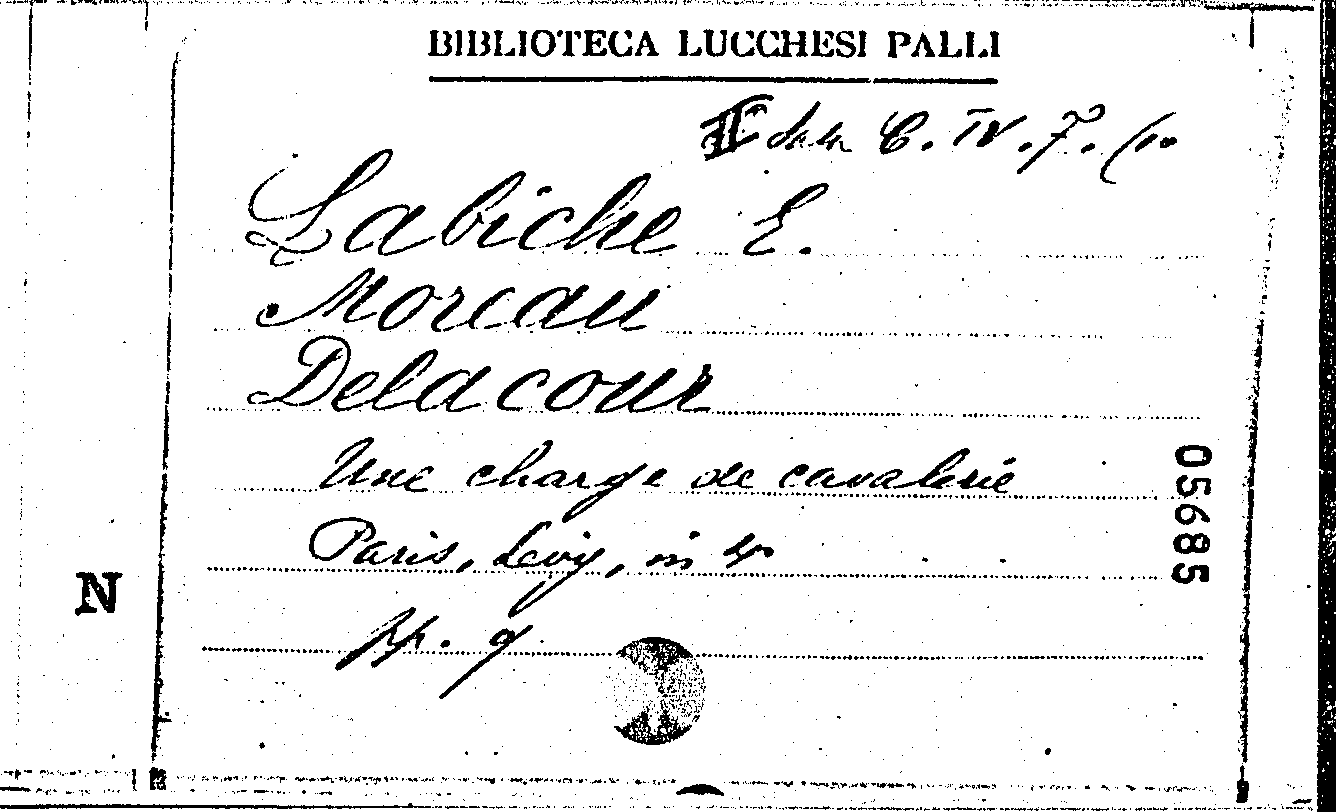 BIBLIOTECA LUCCHESI PALLI
II Sala C. IV. 7. (10
Labiche E.
Moreau
Delacour
Une charge de cavalerie
Paris, Levy, in 4°
pp. 9
05685
N